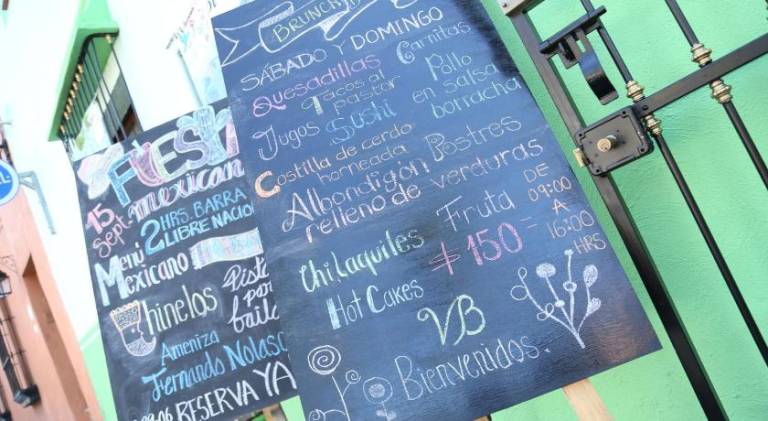 BRUNCH
SÁBADO Y DOMINGO
Quesadillas Carnitas
Tacos al pastor Pollo
Jugos Sushi en salsa borracha
Castilla de cerdo
horneada Postres
Albondigón
relleno de verduras
Fruta DE 09:00 A 16:00 HRS
Chilaquiles $150
Hot Cakes
VB
Bienvenidos.
FIESTA
mexicana
15 Sept. 2 HRS. BARRA
LIBRE NACIO
Menú
Mexicano
Chinelos Pista
por
baila
Ameniza
Fernando Nolasc
09-06 RESERVA YA